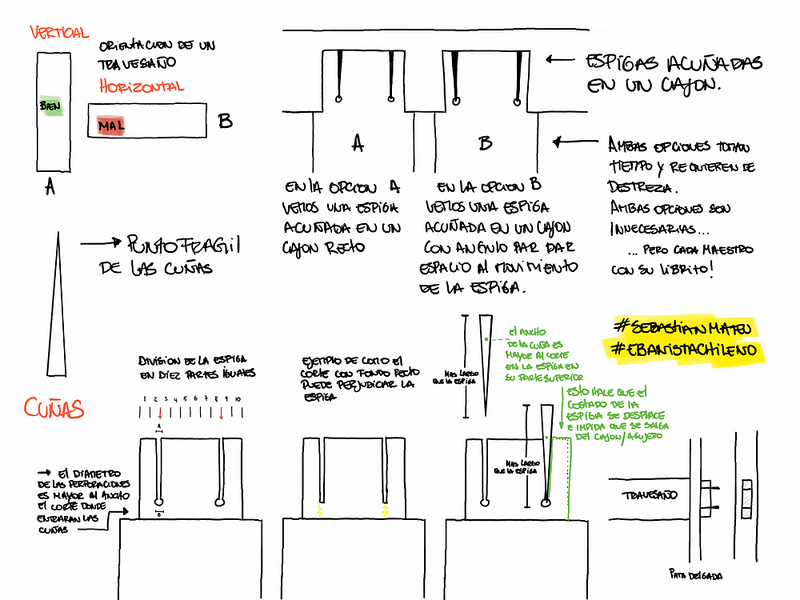 VERTICAL
ORIENTACION DE UN
TRAVESAÑO
HORIZONTAL
BIEN
MAL
B
A
ESPIGAS ACUÑADAS
EN UN CAJON.
A
B
AMBAS OPCIONES TOMAN
TIEMPO Y REQUIEREN DE
DESTREZA.
AMBAS OPCIONES SON
INNECESARIAS...
... PERO CADA MAESTRO
CON SU LIBRITO!
EN LA OPCION A
VEMOS UNA ESPIGA
ACUÑADA EN UN
CAJON RECTO
EN LA OPCION B
VEMOS UNA ESPIGA
ACUÑADA EN UN CAJON
CON ANGULO PAR DAR
ESPACIO AL MOVIMIENTO
DE LA ESPIGA.
PUNTO FRAGIL
DE LAS CUÑAS
#SEBASTIANMATEU
#EBANISTACHILENO
CUÑAS
DIVISION DE LA ESPIGA
EN DIEZ PARTES IGUALES
1 2 3 4 5 6 7 8 9 10
A
B
→ EL DIAMETRO
DE LAS PERFORACIONES
ES MAYOR AL ANCHO
EL CORTE DONDE
ENTRARAN LAS
CUÑAS
EJEMPLO DE COMO EL
CORTE CON FONDO RECTO
PUEDE PERJUDICAR LA
ESPIGA
MAS LARGO
QUE LA ESPIGA
EL ANCHO
DE LA CUÑA ES
MAYOR AL CORTE
EN LA ESPIGA EN
SU PARTE SUPERIOR
MAS LARGO
QUE LA ESPIGA
ESTO HACE QUE EL
COSTADO DE LA
ESPIGA SE DESPLACE
E IMPIDA QUE SE SALGA
DEL CAJON/AGUJERO
TRAVESAÑO
PATA DELGADA